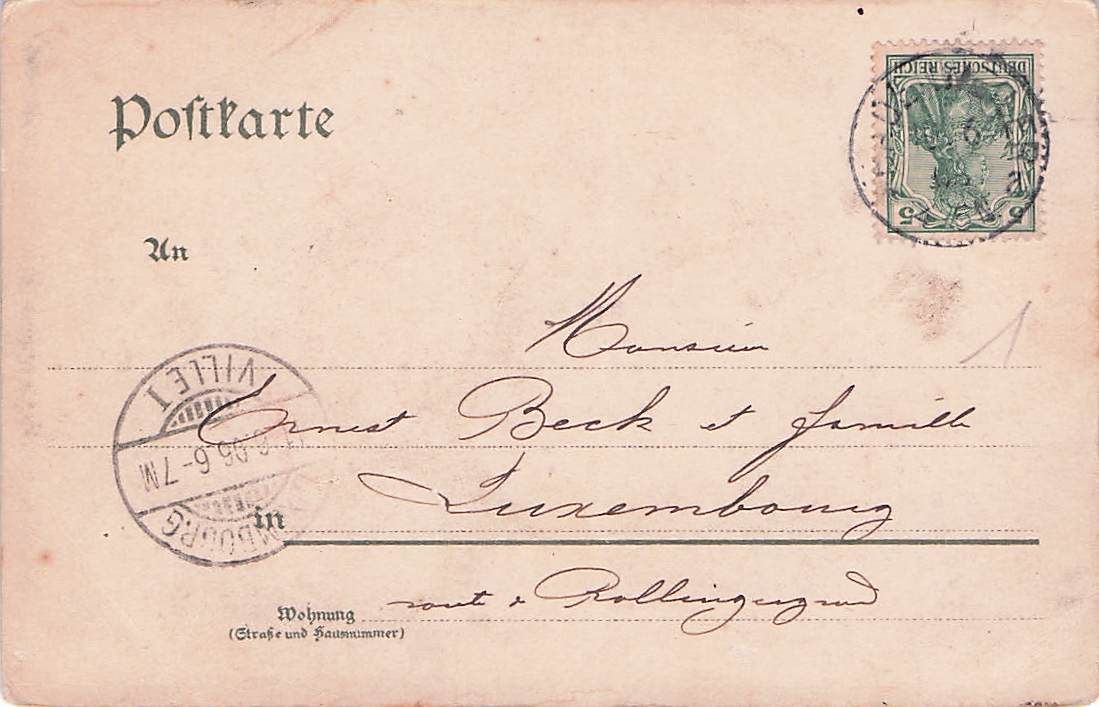 Postkarte
DEUTSCHES REICH
5 5
An
Monsieur
Ernest Beck et famille
Luxembourg
in
route de Rollingergrund
Wohnung
(Straße und Hausnummer)
VILLE I
6-7M
BOURG
1